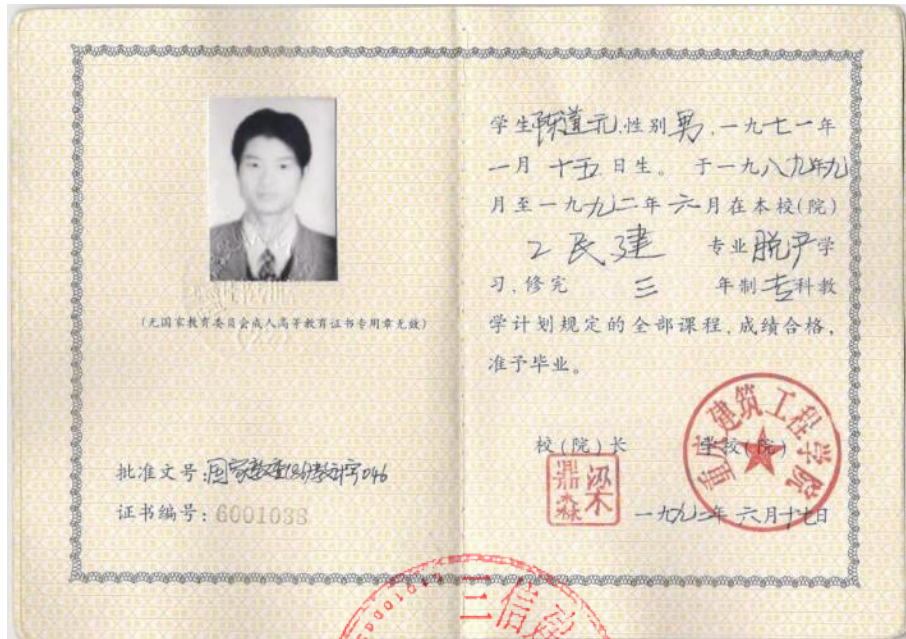 (无国家教育委员会成人高等教育证书专用章无效)
批准文号:国家教委
证书编号:6001038
学生陈道元,性别男,一九七一年
一月十五日生。于一九八九年九
月至一九九二年六月在本校(院)
工民建 专业脱产学
习,修完 三 年制专科教
学计划规定的全部课程,成绩合格,
准予毕业。
校(院)长 学校(院)
梁鼎森
重庆建筑工程学院
一九九二年六月十七日
三信建